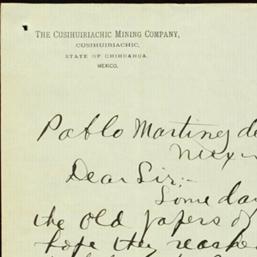 THE CUSIHUIRIACHIC MINING COMPANY,
CUSIHUIRIACHIC,
STATE OF CHIHUAHUA.
MEXICO.
Pablo Martinez de
Mexi
Dear Sir:-
Some da
the old papers of
hope they reache